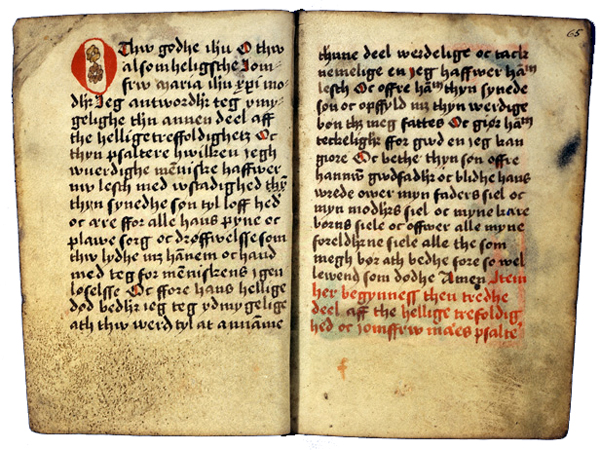 O Thw godhe ihū O thw
alsomheligsthe Iom-
frw maria ihū xp̄i mo-
dhr̄ Jeg antwordhr̄ teg ydmy-
gelighe thn̄ annen deel aff
the hellige treffoldighetz Oc
thyn psaltere hwilken jegh
wuerdighe mēniske haffwer
nw lesth med wstadighed thȳ
thyn synedhe søn tyl loff hed
oc ære ffor alle hans pyne oc
plawe sorg oc drøffwelsse som
thw lydhe mz hānem oc haud
med teg for mēniskens igen
løselsse Oc ffore hans hellige
død bedhr̄ ieg teg ydmygelige
ath thw werd tyl at annāme
65
thnne deel werdelige oc tack
nemelige en jeg haffwer hām
lesth Oc offre hām thn̄ synede
søn oc opffyld mz thn̄ werdige
bøn thz meg fattes Oc giør hām
teckelighr̄ ffor gwd en jeg kan
giøre Oc bethe thyn søn offre
hannū gwdfadhr̄ oc blidhe hans
wrede ower myn faders siel oc
myn modhr̄s siel oc myne kære
børns siele oc offwer alle myne
foreldhr̄ne siele alle the som
megh bør ath bedhe fore so wel
lewend som dødhe Amen Item
her begynness then tredhe
deel aff the hellige trefoldig
hed oc jomffrw maēs psalte